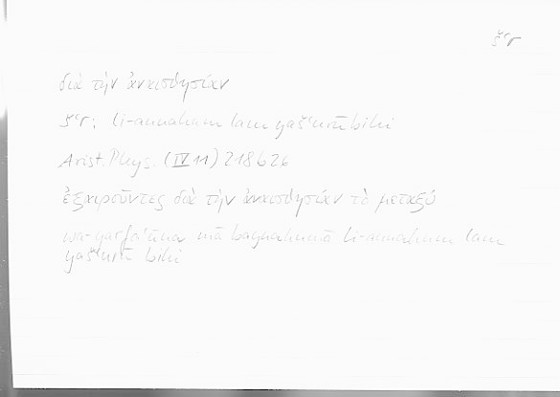 šʿr
διὰ τὴν ἀναισθησίαν
šʿr: li-annahum lam yašʿurū bihi
Arist. Phys. (IV 11) 218 b 26
ἐξαιροῦντες διὰ τὴν ἀναισθησίαν τὸ μεταξύ
wa-yarfaʿūna mā baynahumā li-annahum lam
yašʿurū bihi